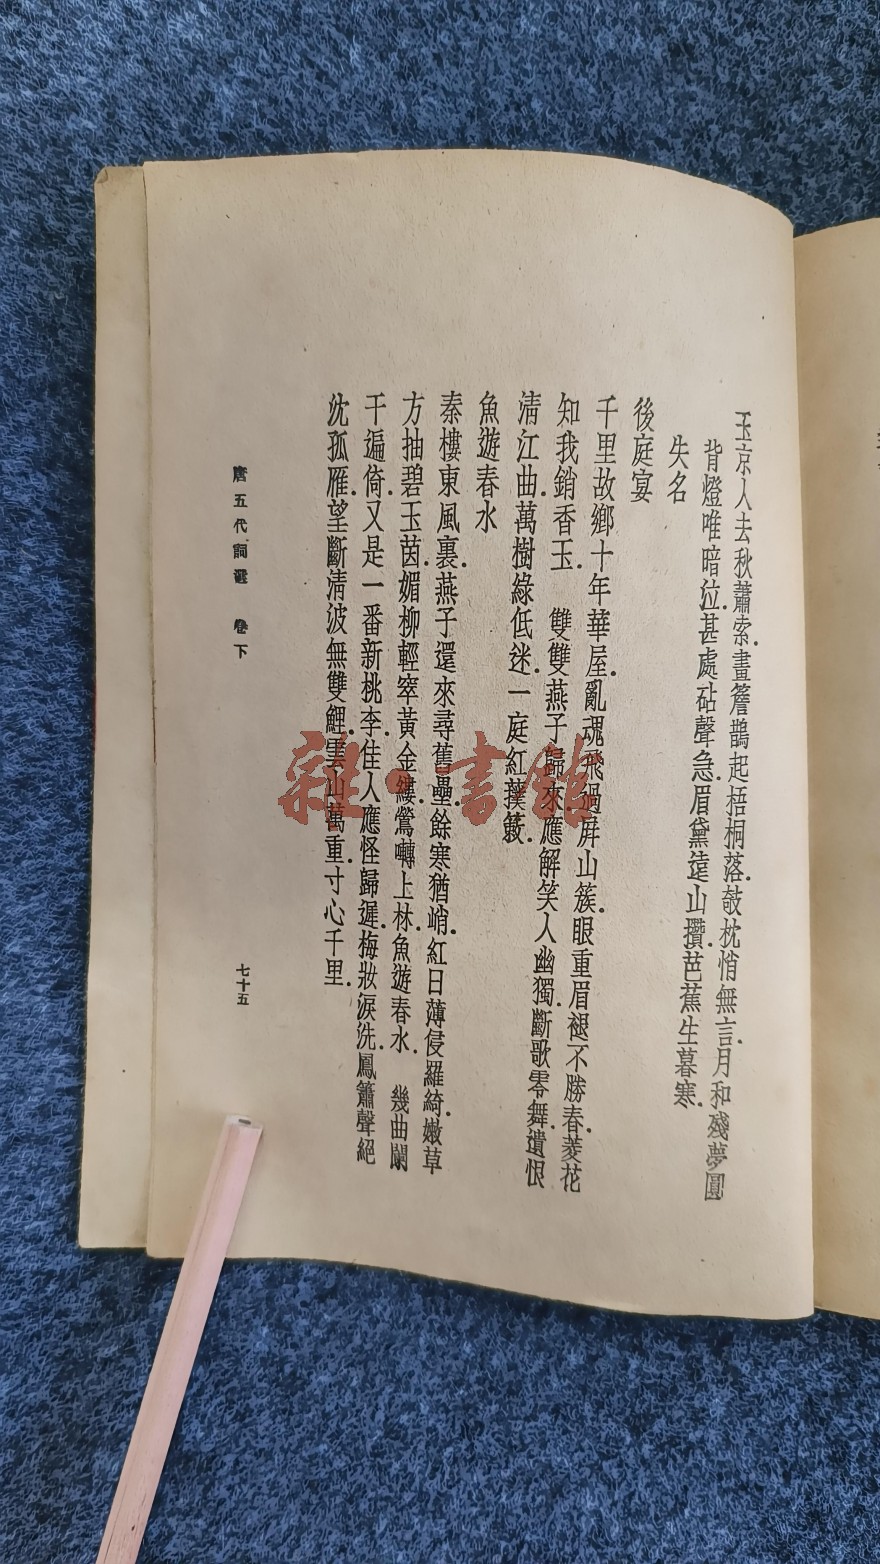 玉京人去秋蕭索.畫簷鵲起梧桐落.攲枕悄無言.月和殘夢圓.
背燈唯暗泣.甚處砧聲急.眉黛遠山攢.芭蕉生暮寒.
失名
後庭宴
千里故鄉.十年華屋.亂魂飛過屛山簇.眼重眉褪不勝春.菱花
知我銷香玉.　雙雙燕子歸來.應解笑人幽獨.斷歌零舞.遺恨
淸江曲.萬樹綠低迷.一庭紅撲簌.
魚遊春水
秦樓東風裏.燕子還來尋舊壘.餘寒猶峭.紅日薄侵羅綺.嫩草
方抽碧玉茵.媚柳輕窣黃金縷.鶯囀上林.魚遊春水.　幾曲闌
干遍倚.又是一番新桃李.佳人應怪歸遲.梅妝淚洗.鳳簫聲絕
沈孤雁.望斷淸波無雙鯉.雲山萬重.寸心千里.
唐五代詞選　卷下
七十五
雜·書館